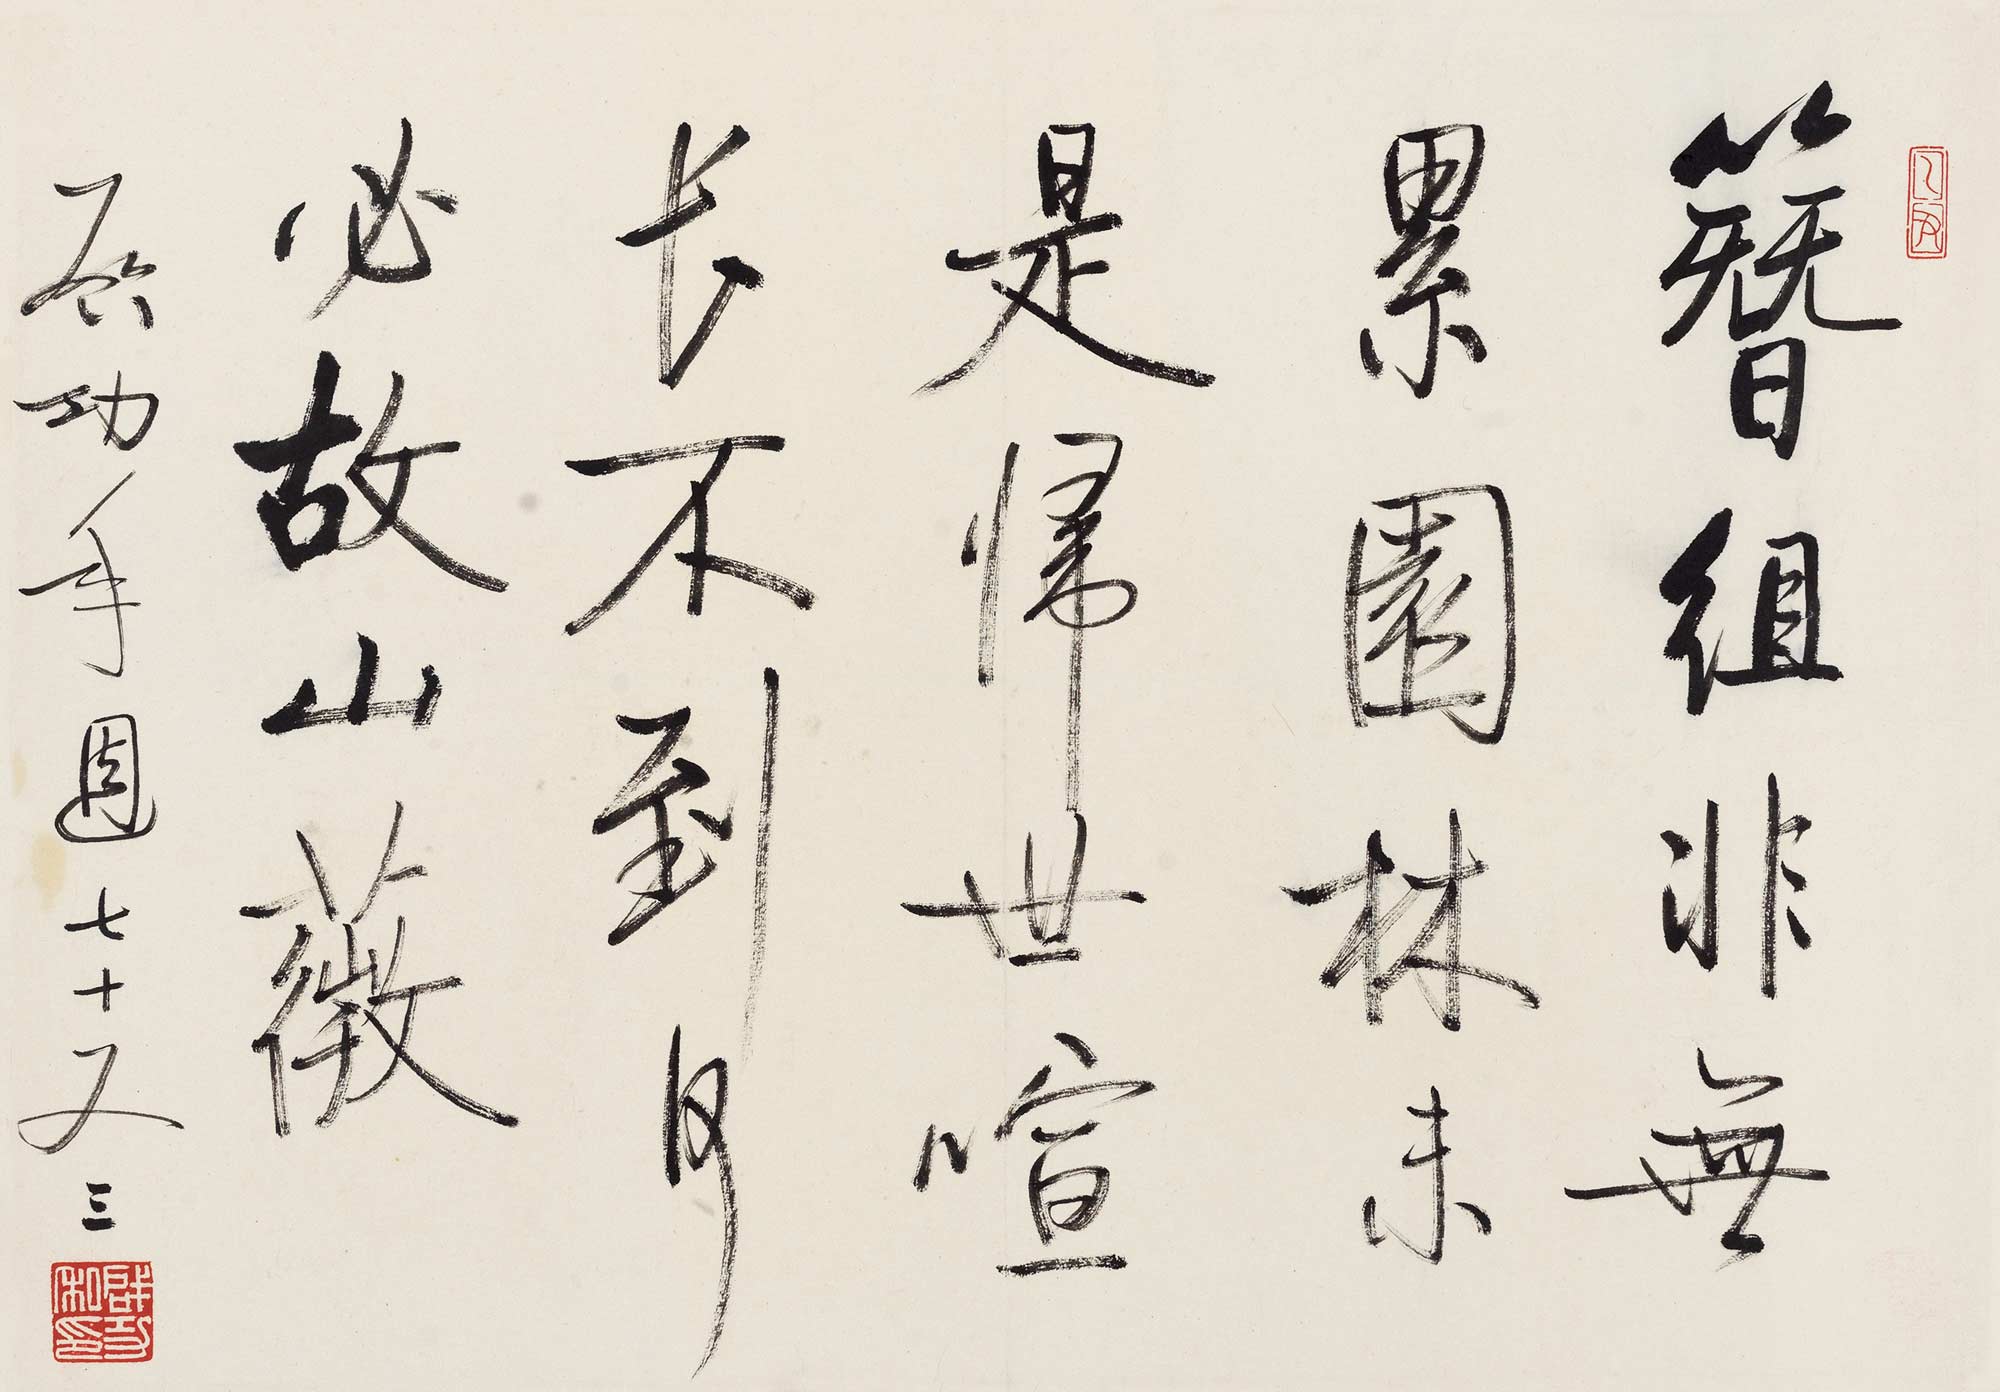 乙丑
簪組非無
累園林未
是歸世喧
长不到何
必故山薇
启功年週七十又三
啟功私印